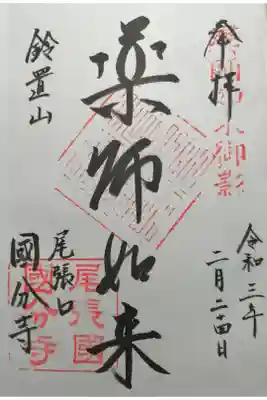 奉拝
令和三年
二月二十四日
薬師如来
鈴置山
尾張口
國分寺
尾張国
國分寺